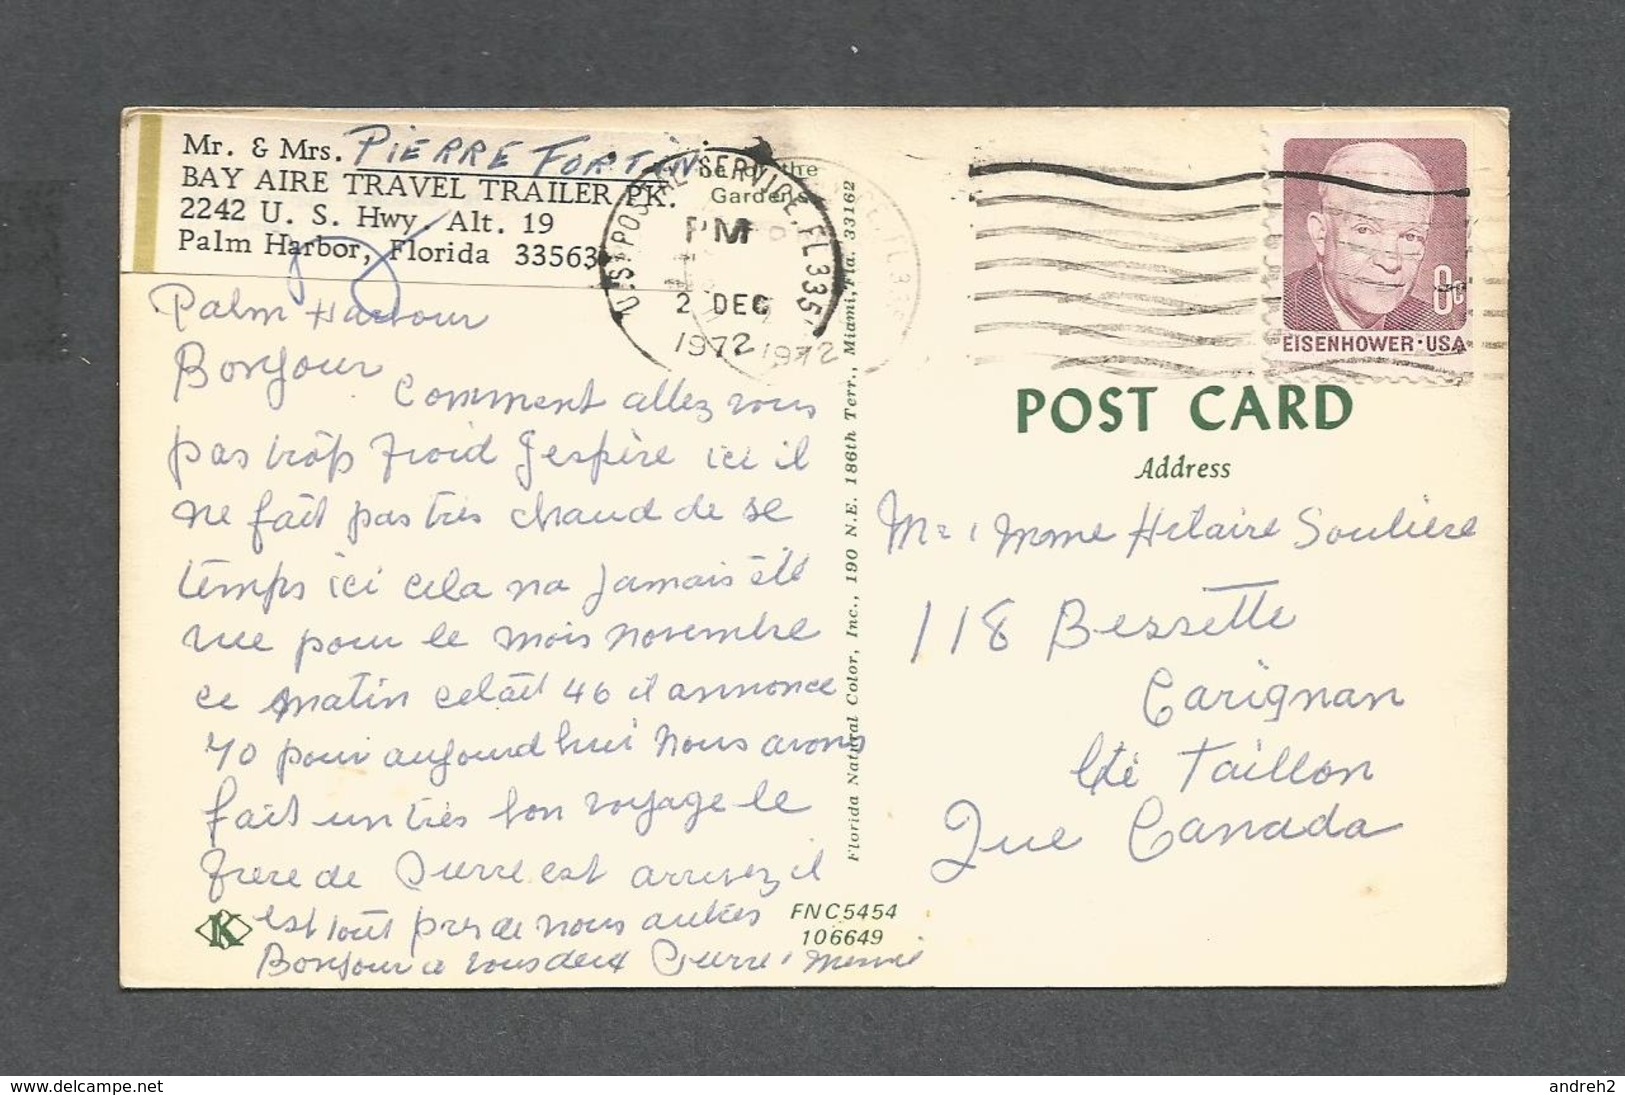 Mr. & Mrs. PIERRE FORTIN
BAY AIRE TRAVEL TRAILER PK.
2242 U. S. Hwy. Alt. 19
Palm Harbor, Florida 33563
Palm Harbour
Bonjour
Comment allez vous
pas trop froid J'espère ici il
ne fait pas très chaud de se
temps ici cela na jamais été
vue pour le mois novembre
ce matin cetait 46 il annonce
70 pour aujourd'hui Nous avons
fait un très bon voyage le
frere de Pierre est arrivez il
est tout pres de nous autres
Bonjour a vous deux Pierre
the
Gardens
U.S. POSTAL SERVICE, FL 335
PM
2 DEC
1972
1972
Florida Natural Color, Inc., 190 N.E. 186th Terr., Miami, Fla. 33162
FNC5454
106649
K
8c
EISENHOWER·USA
POST CARD
Address
Mr & Mme Hilaire Souliere
118 Bessette
Carignan
Cté Taillon
Que Canada
www.delcampe.net
andreh2